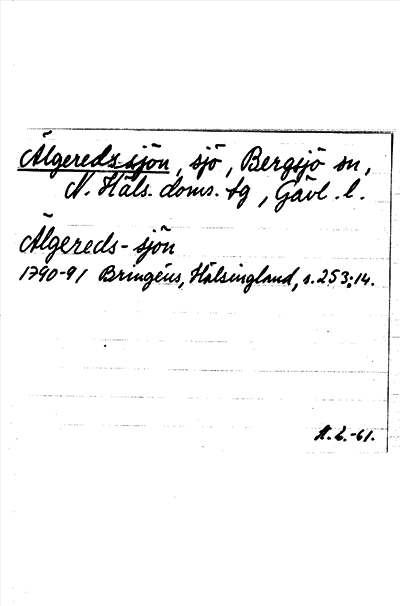 Älgeredssjön, sjö, Bergsjö sn,
N. Häls. doms. tg, Gävl. l.
Älgereds-sjön
1790-91 Bringéus, Hälsingland, s. 253:14.
A.L.-61.